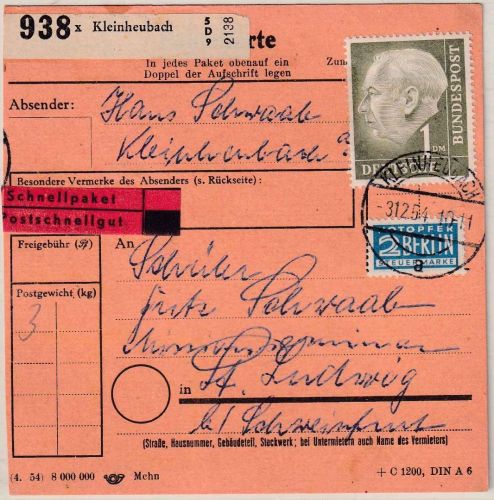 938 x Kleinheubach 5 D 9 2138
rte
In jedes Paket obenauf ein Zum
Doppel der Aufschrift legen
Absender: Hans Schwaab
Kleinheubach a
Besondere Vermerke des Absenders (s. Rückseite):
Schnellpaket
Postschnellgut
1 DM
DEUTSCHE
BUNDESPOST
KLEINHEUBACH
-3.12.54.-10-11
a
NOTOPFER
2 BERLIN
STEUERMARKE
Freigebühr (₰)
Postgewicht (kg)
3
An
Schüler
Fritz Schwaab
Missionsseminar
in St. Ludwig
b/ Schweinfurt
(Straße, Hausnummer, Gebäudeteil, Stockwerk; bei Untermietern auch Name des Vermieters)
(4. 54) 8 000 000 Mehn
+ C 1200, DIN A 6